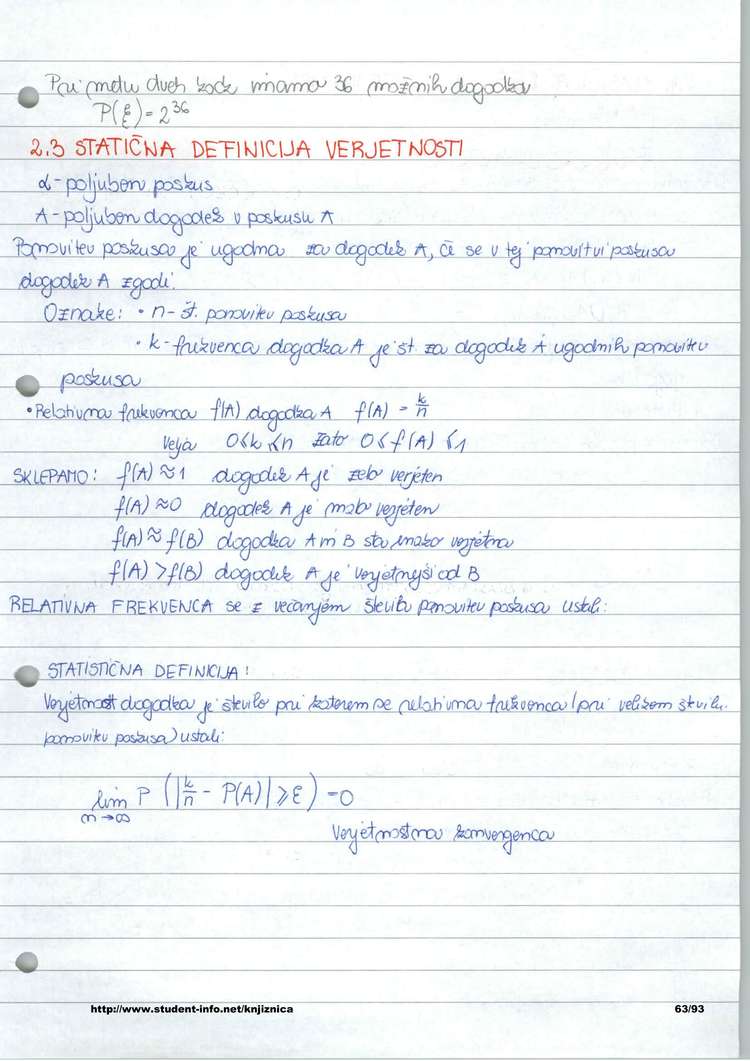 Pri metu dveh kock imamo 36 možnih dogodkov
P(ξ) = 2^36
2.3 STATIČNA DEFINICIJA VERJETNOSTI
α - poljuben poskus
A - poljuben dogodek v poskusu A
Ponovitev poskusa je ugodna za dogodek A, če se v tej ponovitvi poskusa
dogodek A zgodi.
Oznake: • n - št. ponovitev poskusa
• k - frekvenca dogodka A je št. za dogodek A ugodnih ponovitev
poskusa
• Relativna frekvenca f(A) dogodka A f(A) = k/n
Velja 0≤k≤n zato 0≤f(A)≤1
SKLEPAMO: f(A) ≈ 1 dogodek A je zelo verjeten
f(A) ≈ 0 dogodek A je malo verjeten
f(A) ≈ f(B) dogodka A in B sta enako verjetna
f(A) > f(B) dogodek A je verjetnejši od B
RELATIVNA FREKVENCA se z večanjem števila ponovitev poskusa ustali:
STATISTIČNA DEFINICIJA:
Verjetnost dogodka je število pri katerem se relativna frekvenca (pri velikem številu
ponovitev poskusa) ustali:
lim P (|k/n - P(A)| ≥ ε) = 0
n→∞
Verjetnostna konvergenca
http://www.student-info.net/knjiznica 63/93